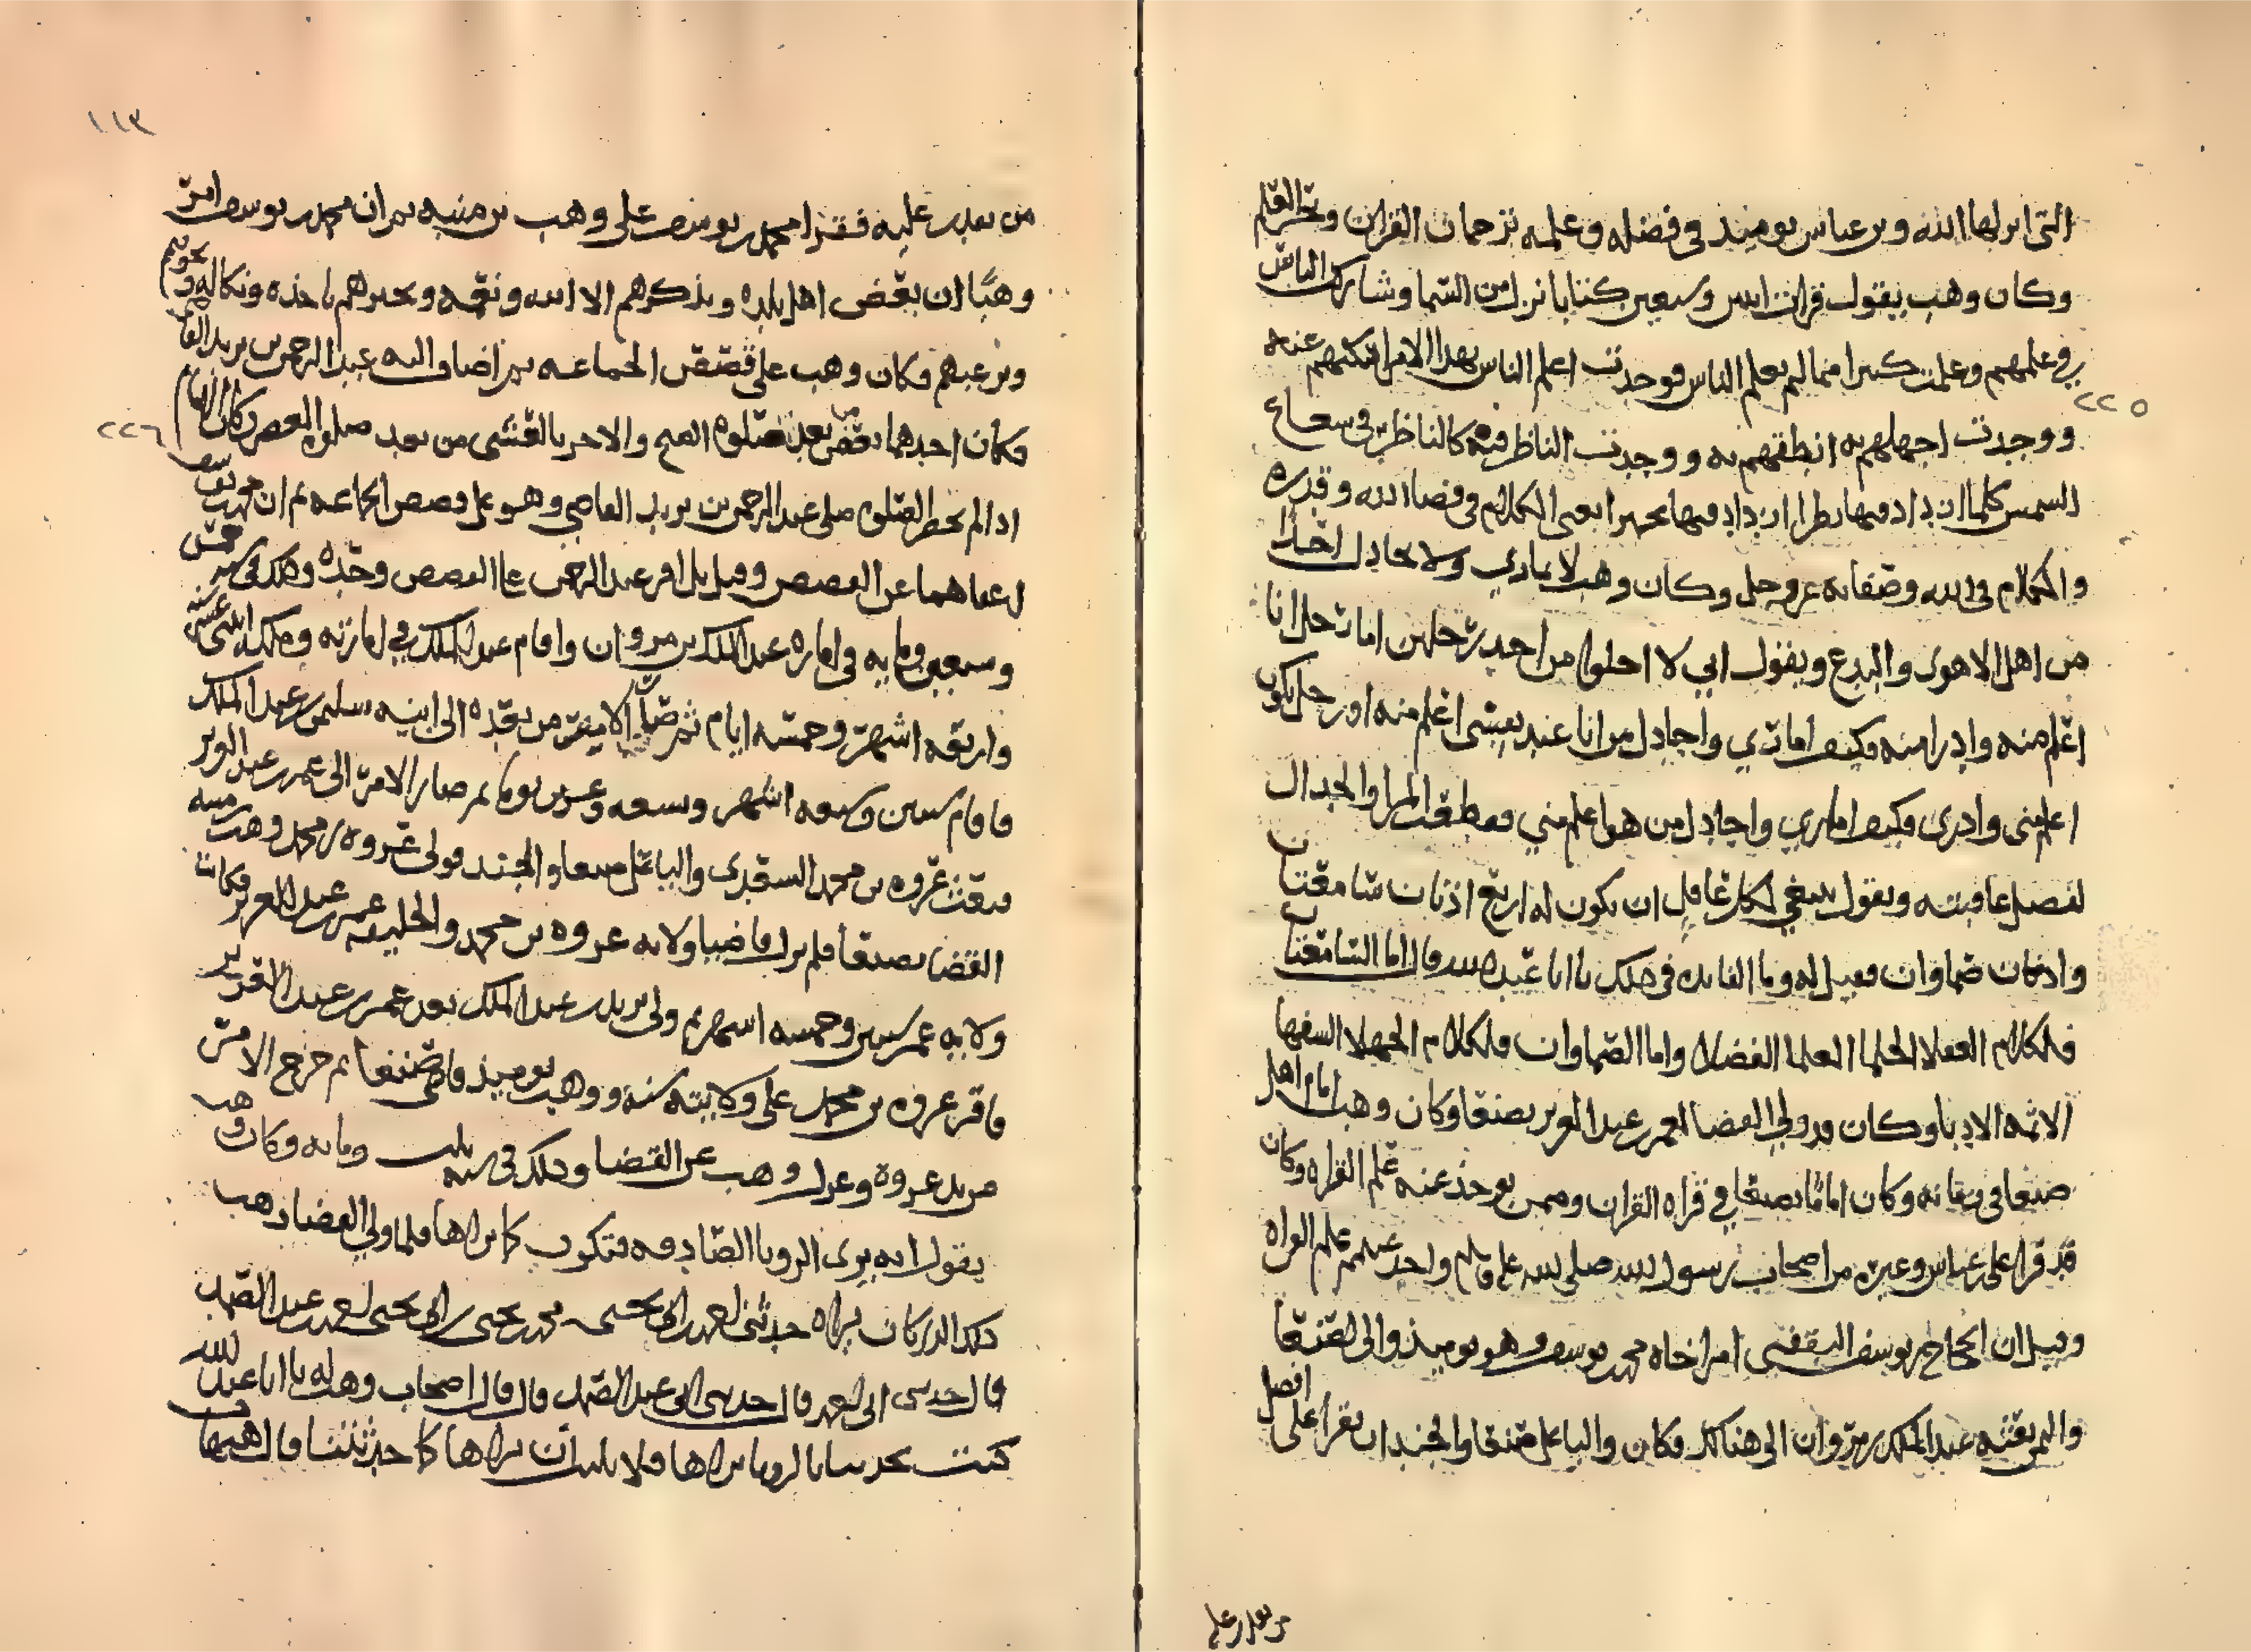 التي انزلها الله وبن عباس يوميذ في فضله وعلمه ترجمان القران وبحر العلم
وكان وهب يقول قرات اثنين وسبعين كتابا نزلت من السما وشاركت الناس
في علمهم وعلمت كثيرا مما لم يعلم الناس فوجدت اعلم الناس بهذا الامر اسكتهم عنه
٢٢٥
ووجدت اجهلهم به انطقهم به ووجدت الناظر فيه كالناظر في شعاع
الشمس كلما ازداد فيها نظرا ازداد فيها تحيرا يعني الكلام في قضا الله وقدره
والكلام في الله وصفاته عز وجل وكان وهب لا يماري ولا يجادل احدا
من اهل الاهوى والبدع ويقول اني لا اخلوا من احد رجلين اما رجل انا
اعلم منه وادرا منه فكيف اماري واجادل من انا عند نفسي اعلم منه او رجل يكون
اعلم مني وادرى فكيف اماري واجادل من هو اعلم مني المرا والجدال
لفضل عافيته ويقول ينبغي لكل عاقل ان يكون له اربع اذنان سامعتان
واذنان صماوان فقيل له وما الفايده في ذلك يا ابا عبد الله قال اما السامعتان
فلكلام العقلا الحلما العلما الفضلا واما الصماوان فلكلام الجهلا السفها
الادبا وكان قد ولي القضا لعمر بن عبد العزيز بصنعا وكان وهب امام اهل
صنعا في زمانه وكان اماما بصنعا في قراه القران وممن يوخذ عنه علم القراه وكان
قد قرا على بن عباس وغيره من اصحاب رسول الله صلى الله عليه وسلم واخذ عنهم علم القراه
وقيل ان الحجاج بن يوسف الثقفي امر اخاه محمد بن يوسف وهو يوميذ والي صنعا
واليمن بعثه عبد الملك بن مروان الى هناك فكان واليا على صنعا والجند ان يقرا على افضل
من يقدر عليه
١١٣
من يقدر عليه فقرا محمد بن يوسف على وهب بن منبه ثم ان محمد بن يوسف امر
وهبا ان يقص اهل بلده ويذكرهم الا الله ونقمه ويحذرهم باخذه ونكاله ويخوفهم
ويرغبهم فكان وهب على قصص الجماعه ثم اضاف اليه عبد الرحمن بن يزيد القاص
٢٢٦
فكان احدهما يقص بعد صلوه الصبح والاخر بالعشي من بعد صلوه العصر وكان الامام
اذا لم يحضر الصلوه صلى عبد الرحمن بن يزيد القاضي وهو على قصص الجماعه ثم ان محمد بن يوسف
اعفاهما عن القصص وقيل بل اقر عبد الرحمن على القصص وحده وذلك في سنه خمس
وسبعين وما به في اماره عبد الملك بن مروان واقام عبد الملك في امارته وملكه اثنتي عشره سنه
واربعه اشهر وخمسه ايام ثم صار الامر من بعده الى ابنه سليمن بن عبد الملك
فاقام سنتين وسبعه اشهر وتسعه وعشرين يوما ثم صار الامر الى عمر بن عبد العزيز
فبعث عروه بن محمد السعدي واليا على صنعا والجند فولى عروه بن محمد وهب بن منبه
القضا بصنعا فلم يزل قاضيا ولايه عروه بن محمد والخليفه عمر بن عبد العزيز وكانت
ولايه عمر سنتين وخمسه اشهر ثم ولي يزيد بن عبد الملك بعد عمر بن عبد العزيز
فاقر عروه بن محمد على ولايته سنه ووهب يوميذ قاضي صنعا ثم خرج الامر
من يد عروه وعزل وهب عن القضا وذلك في سنه ثلث ومايه وكان وهب
يقول انه يرى الرويا الصادقه فتكون كما يراها فلما ولي القضا ذهب
ذلك الذي كان يراه حدثني محمد بن يحيى عبد الصمد
قال حدثني ابي قال حدثني ابي عبد الصمد قال قال اصحاب وهب له يا ابا عبد الله
كنت تحدثنا بالرويا تراها فلا تلبث ان تراها كما حدثتنا قال